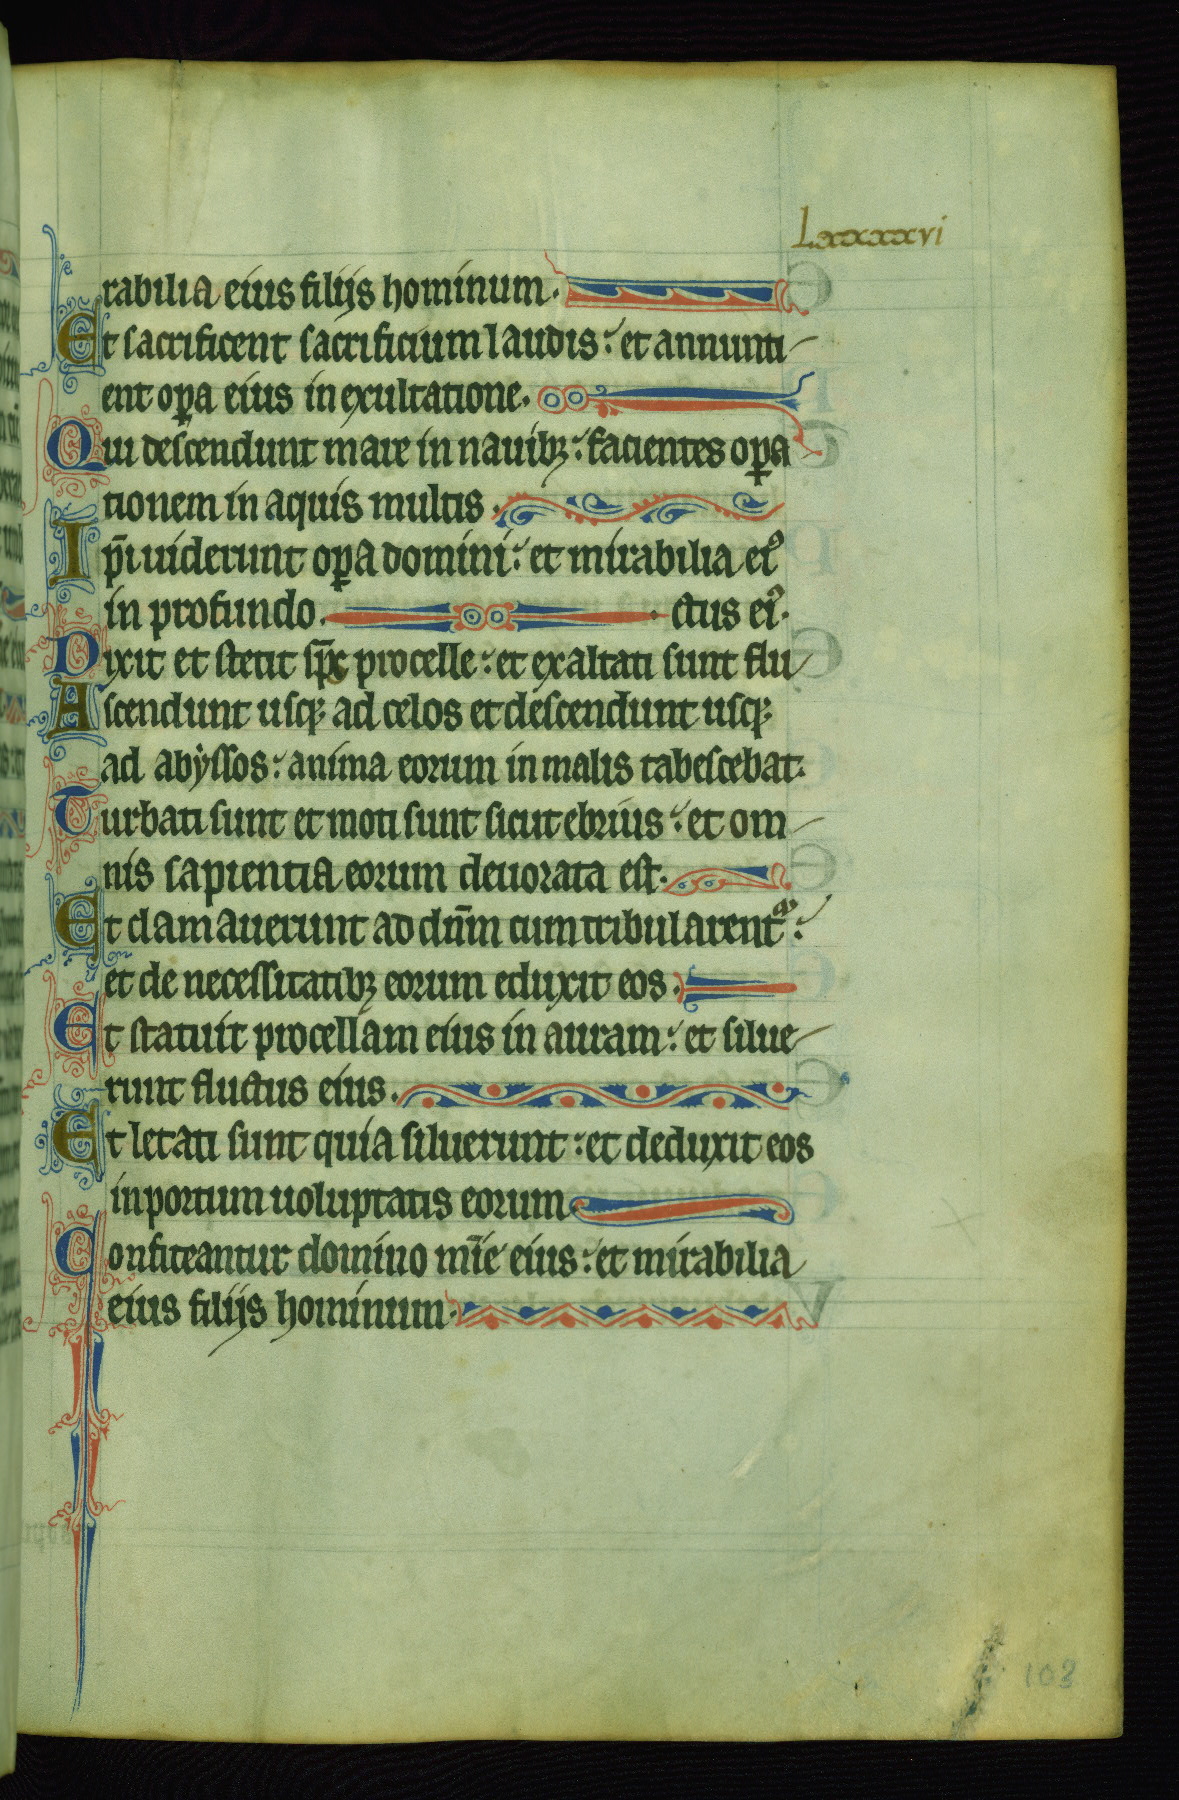 Lxxxxxvi
rabilia eius filijs hominum.
Et sacrificent sacrificium laudis: et annunti
ent op̱a eius in exultatione.
Qui descendunt mare in nauibꝫ: facientes op̱a
tionem in aquis multis.
Ip̄i uiderunt op̱a domini: et mirabilia eiꝰ
in profundo. ctus eiꝰ.
Dixit et stetit sp̄c procelle: et exaltati sunt flu
Ascendunt usqꝫ ad celos et descendunt usqꝫ
ad abẏssos: anima eorum in malis tabescebat.
Turbati sunt et moti sunt sicut ebrius: et om
nis sapientia eorum deuorata est.
Et clamauerunt ad dn̄m cum tribularent᷑:
et de necessitatibꝫ eorum eduxit eos.
Et statuit procellam eius in auram: et silue
runt fluctus eius.
Et letati sunt quia siluerunt: et deduxit eos
in portum uoluptatis eorum
Confiteantur domino mīe eius: et mirabilia
eius filijs hominum.
103